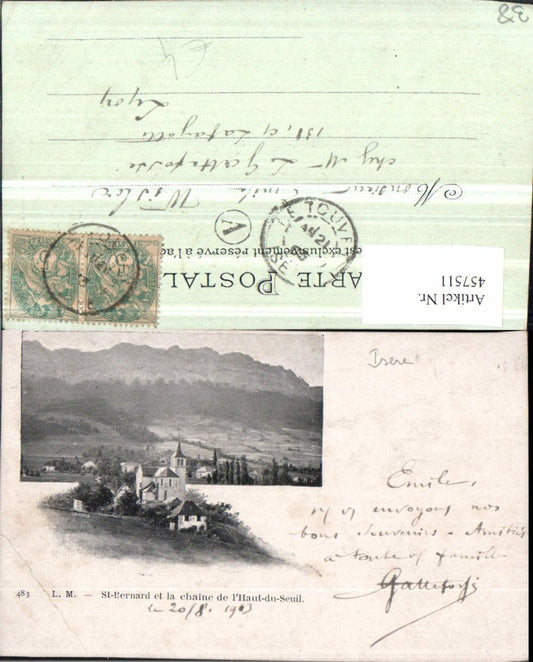 38
Monsieur Emile
chez Mr L. Gattefossé
131, c. Lafayette
Lyon
A
LE TOUVET
21
CARTE POSTALE
est exclusivement réservé à l'a
Artikel Nr.
457511
Isère
Emile,
ns vs envoyons nos
bons souvenirs & Amitiés
à toute la famille
Gattefossé
483 L. M. — St-Bernard et la chaine de l'Haut-du-Seuil.
le 20/8. 1903